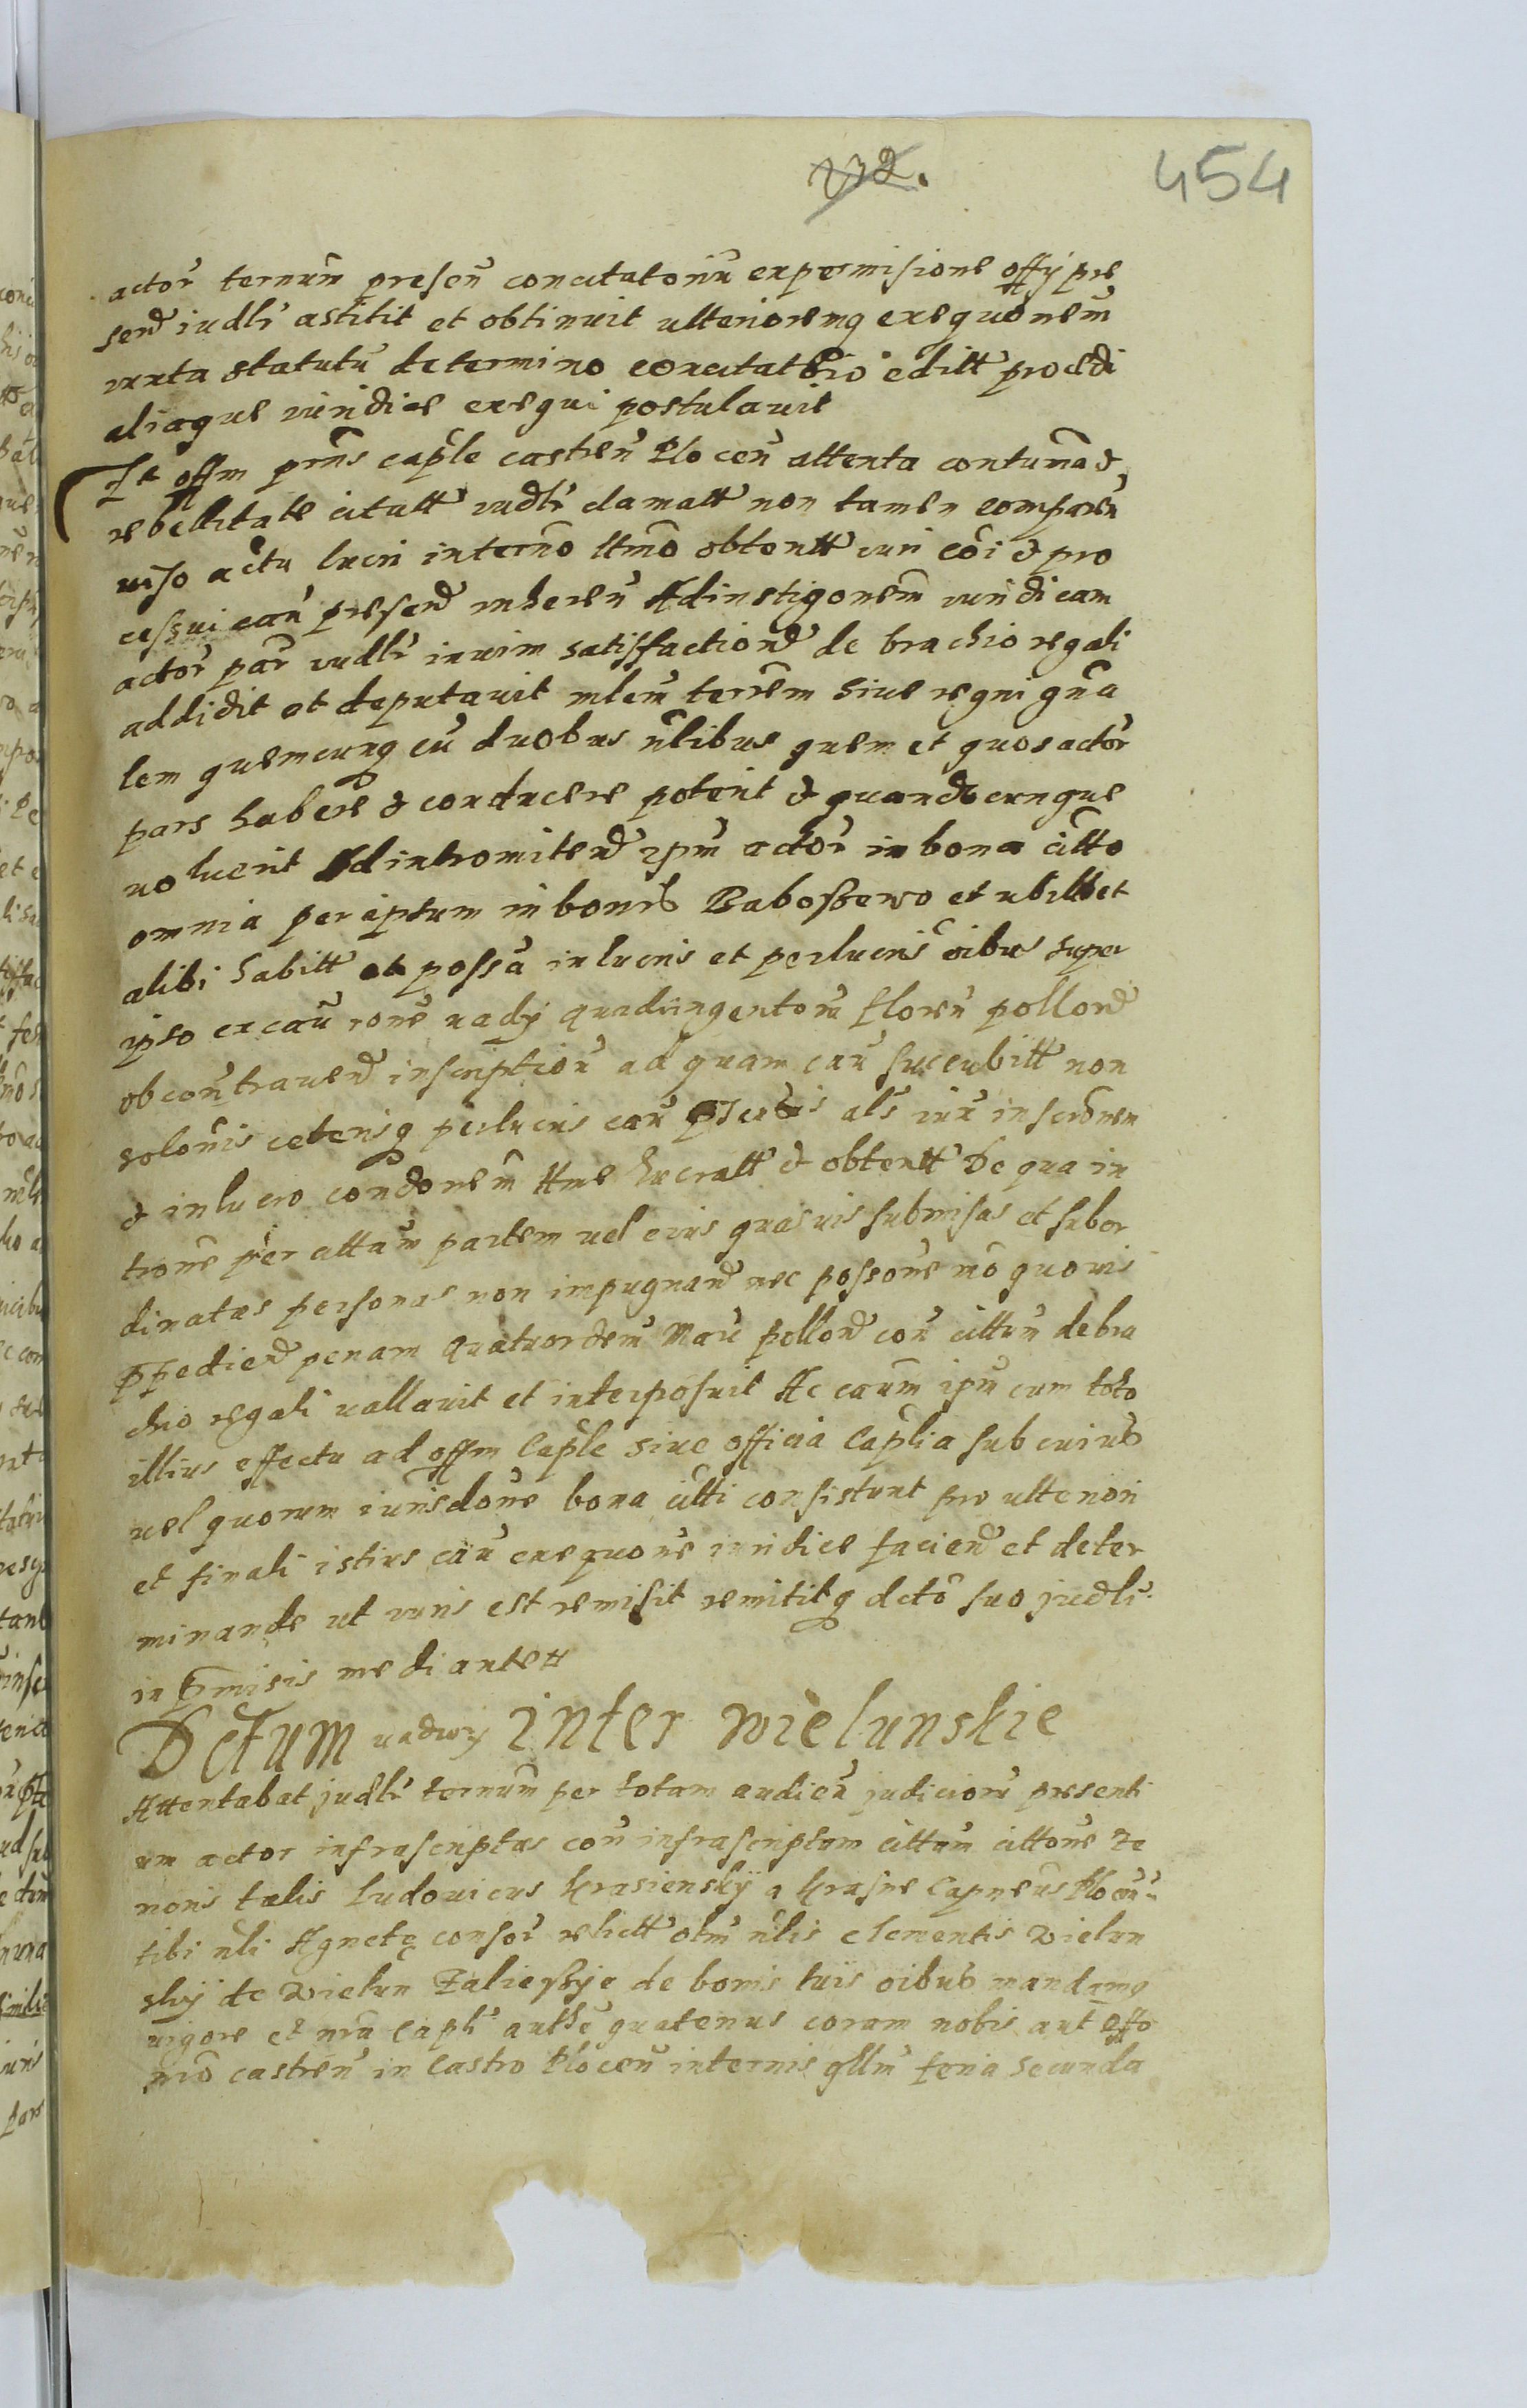 232.
454
actor̃ ternum̃ preseñ concitatoriũ expermisione offij pre
señ iudlr̃ astitit et obtinuit ulterioremq exequonem̃
iuxta statutũ determino concitatorio editt procedi
aliaque iuridice exequi postulavit
Et offm pr̃ns caplẽ castreñ Ploceñ attenta contuma &
rebellitate citatt iudlr̃ clamatt non tamen compareñ
viso actu lucri intermõ ltmõ obtentt iuri cõi & pro
cessui cau presend inhereñ Adinstigonem̃ iuridicam
actor̃ par̃ iudlr̃ invim satisfaction̄ de brachio regali
addidit et deputavit mlem̃ terrẽm sive regni gña
lem quemcunq cũ duobus ñlibus quem et quos actor̃
pars habere & conducere poterit & quandocunque
voluerit Adintromitend ipm̃ actor̃ in bona citto
omnia per ipsum in bonis Baboszewo et ubilibet
alibi habitt et possa inlucris et perlucris oibus super
ipso excau rone vadij quadringentorũ floreñ pollond
ob contravend inscription̄ ad quam cau succubitt non
solomis ceterisq perlucris cau als iux inscronem
& inlucro condonem̃ ltme lucratt & obtentt De qua in
trone per attam̃ partem vel eius quasvis submisas et subor
dinatas personas non impugnand nec possone mõ quovis
ppediend penam quatuordem̃ Marc pollond con cittum debra
chio regali vallavit et interposuit Ac caum̃ ipm̃ cum toto
illius effectu ad offm Caplẽ sive officia Caplia sub cuius
vel quorum iurisdone bona citti consistunt pro ulteriori
et finali istius cau exequone iuridice faciend et deter
minande ut iuris est remisit remititq dctõ suo judlr̃
in pmisis mediante
Dctum vadij inter Wielunskie
Attentabat judlr̃ ternum̃ per totam audien judiciorũ presenti
um actor infrascriptus con infrascriptam cittam cittone te
noris talis Ludovicus Krasienskij a Krasne Capneus Ploceñ
tibi nli Agnete consor̃ relictt olm̃ nlis Clementis Wielun
skij de Wielun Zalieskye de bonis tuis oibus mandamq
vigore et mrã Capli authẽ quatenus coram nobis aut offo
nrõ castreñ in Castro Ploceñ internis qllm̃ feria secunda